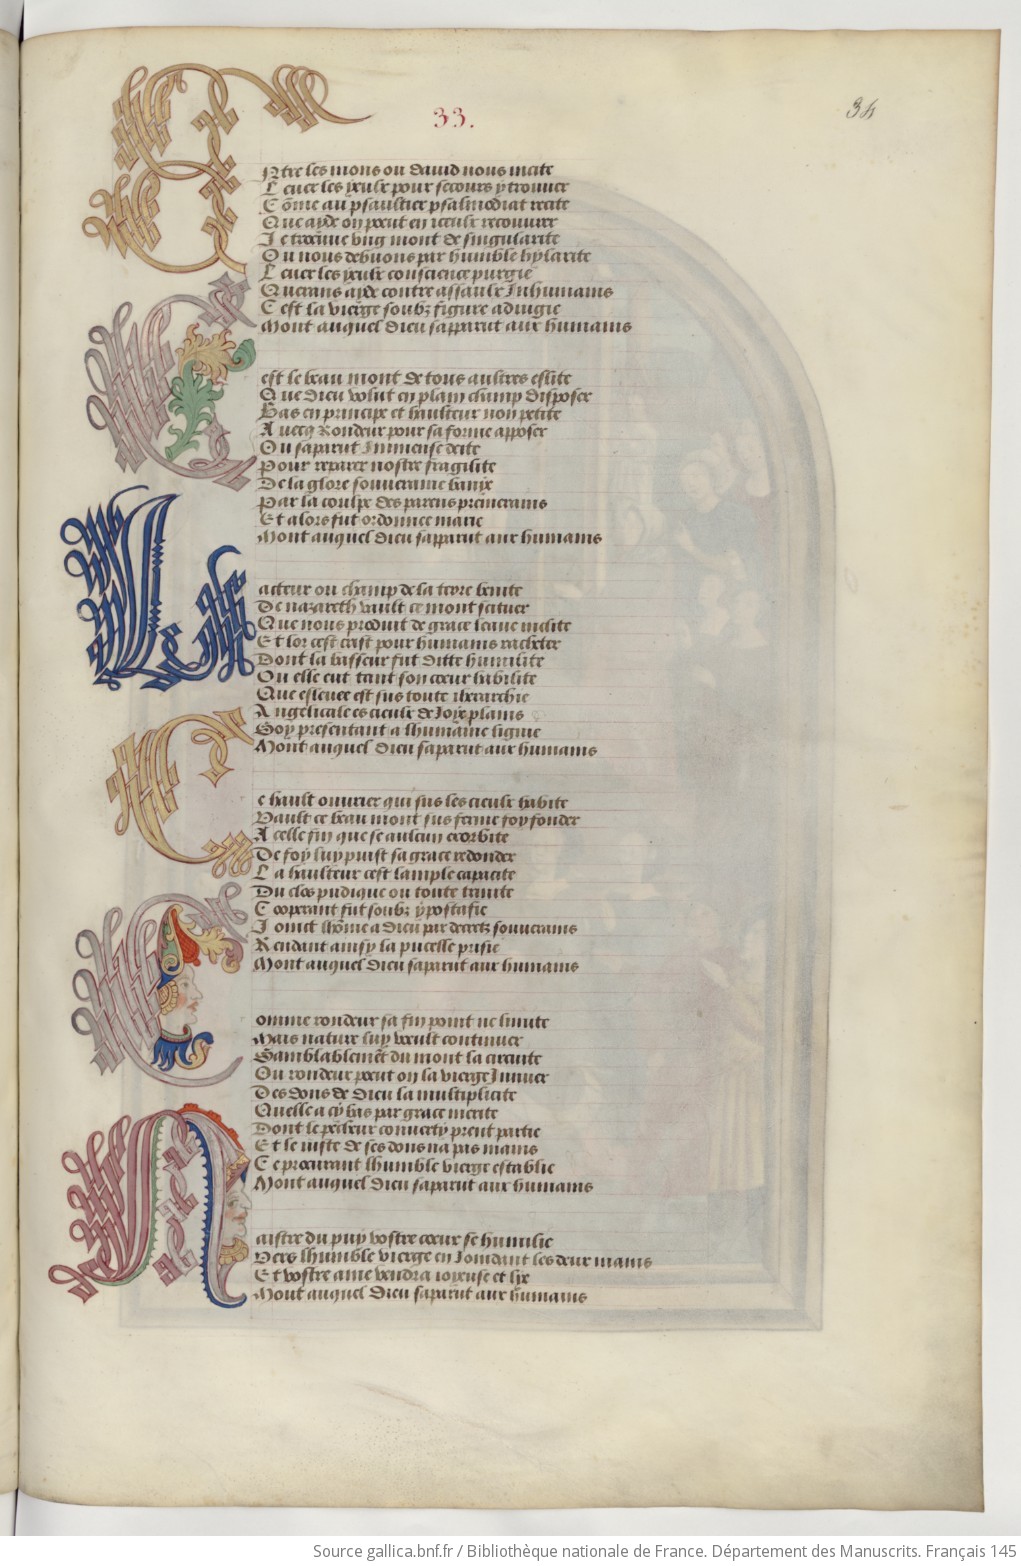 33.
34
Entre les mons ou dauid nous incite
Leuer les yeulx pour secours y trouuer
Cõme au psaultier psalmodiat recite
Que ayde on peut en iceulx recouurer
Je troeuue vng mont de singularite
Ou nous debuons par humble hylarite
Leuer les yeulx conscience purgie
Querans ayde contre assaulx Inhumains
Cest la vierge soubz figure aduigie
Mont auquel Dieu sapparut aux humains
Cest le beau mont de tous aultres eslite
Que Dieu volut en plain champ Disposer
Bas en principe et haulteur non petite
Auecq Rondeur pour sa forme apposer
Ou saparut Immense deite
Pour reparer nostre fragilite
De la glore souueraine banye
Par la coulpe des parens premerains
Et alors fut ordonnee marie
Mont auquel Dieu sapparut aux humains
Lacteur ou champ de la terre benite
De nazareth vault ce mont scituer
Que nous produit de grace leaue inclite
Et lor cest crist pour humains racheter
Dont la basseur fut Ditte humilite
Ou elle eut tant son coeur habilite
Que esleuee est sus toute iherarchie
Angelicale es cieulx de Joye plains
Soy presentant a lhumaine lignie
Mont auquel Dieu saparut aux humains
Ce hault ouurier qui sus les cieulx habite
Vault ce beau mont sus ferme foy fonder
A celle fin que se aulcun exorbite
De foy luy puist sa grace redonder
La haulteur cest lample capacite
Du clos pudique ou toute trinite
Cooperant fut soubz ypostasie
Joinct lhõme a Dieu par decretz souuerains
Rendant ainsy la pucelle prisie
Mont auquel Dieu saparut aux humains
Comme rondeur sa fin point ne limite
Mais nature luy veult continuer
Samblablemẽt du mont la circuite
Ou rondeur peut on la vierge Innuer
Des dons de Dieu la multiplicite
Quelle a cy bas par grace merite
Dont le pecheur conuerty prent partie
Et le iuste de ses dons na pas mains
Ce procurant lhumble vierge establie
Mont auquel Dieu saparut aux humains
Maistre du puy vostre coeur se humilie
Vers lhumble vierge en Joindant les deux mains
Et vostre ame vendra ioyeuse et lye
Mont auquel Dieu saparut aux humains
Source gallica.bnf.fr / Bibliothèque nationale de France. Département des Manuscrits. Français 145